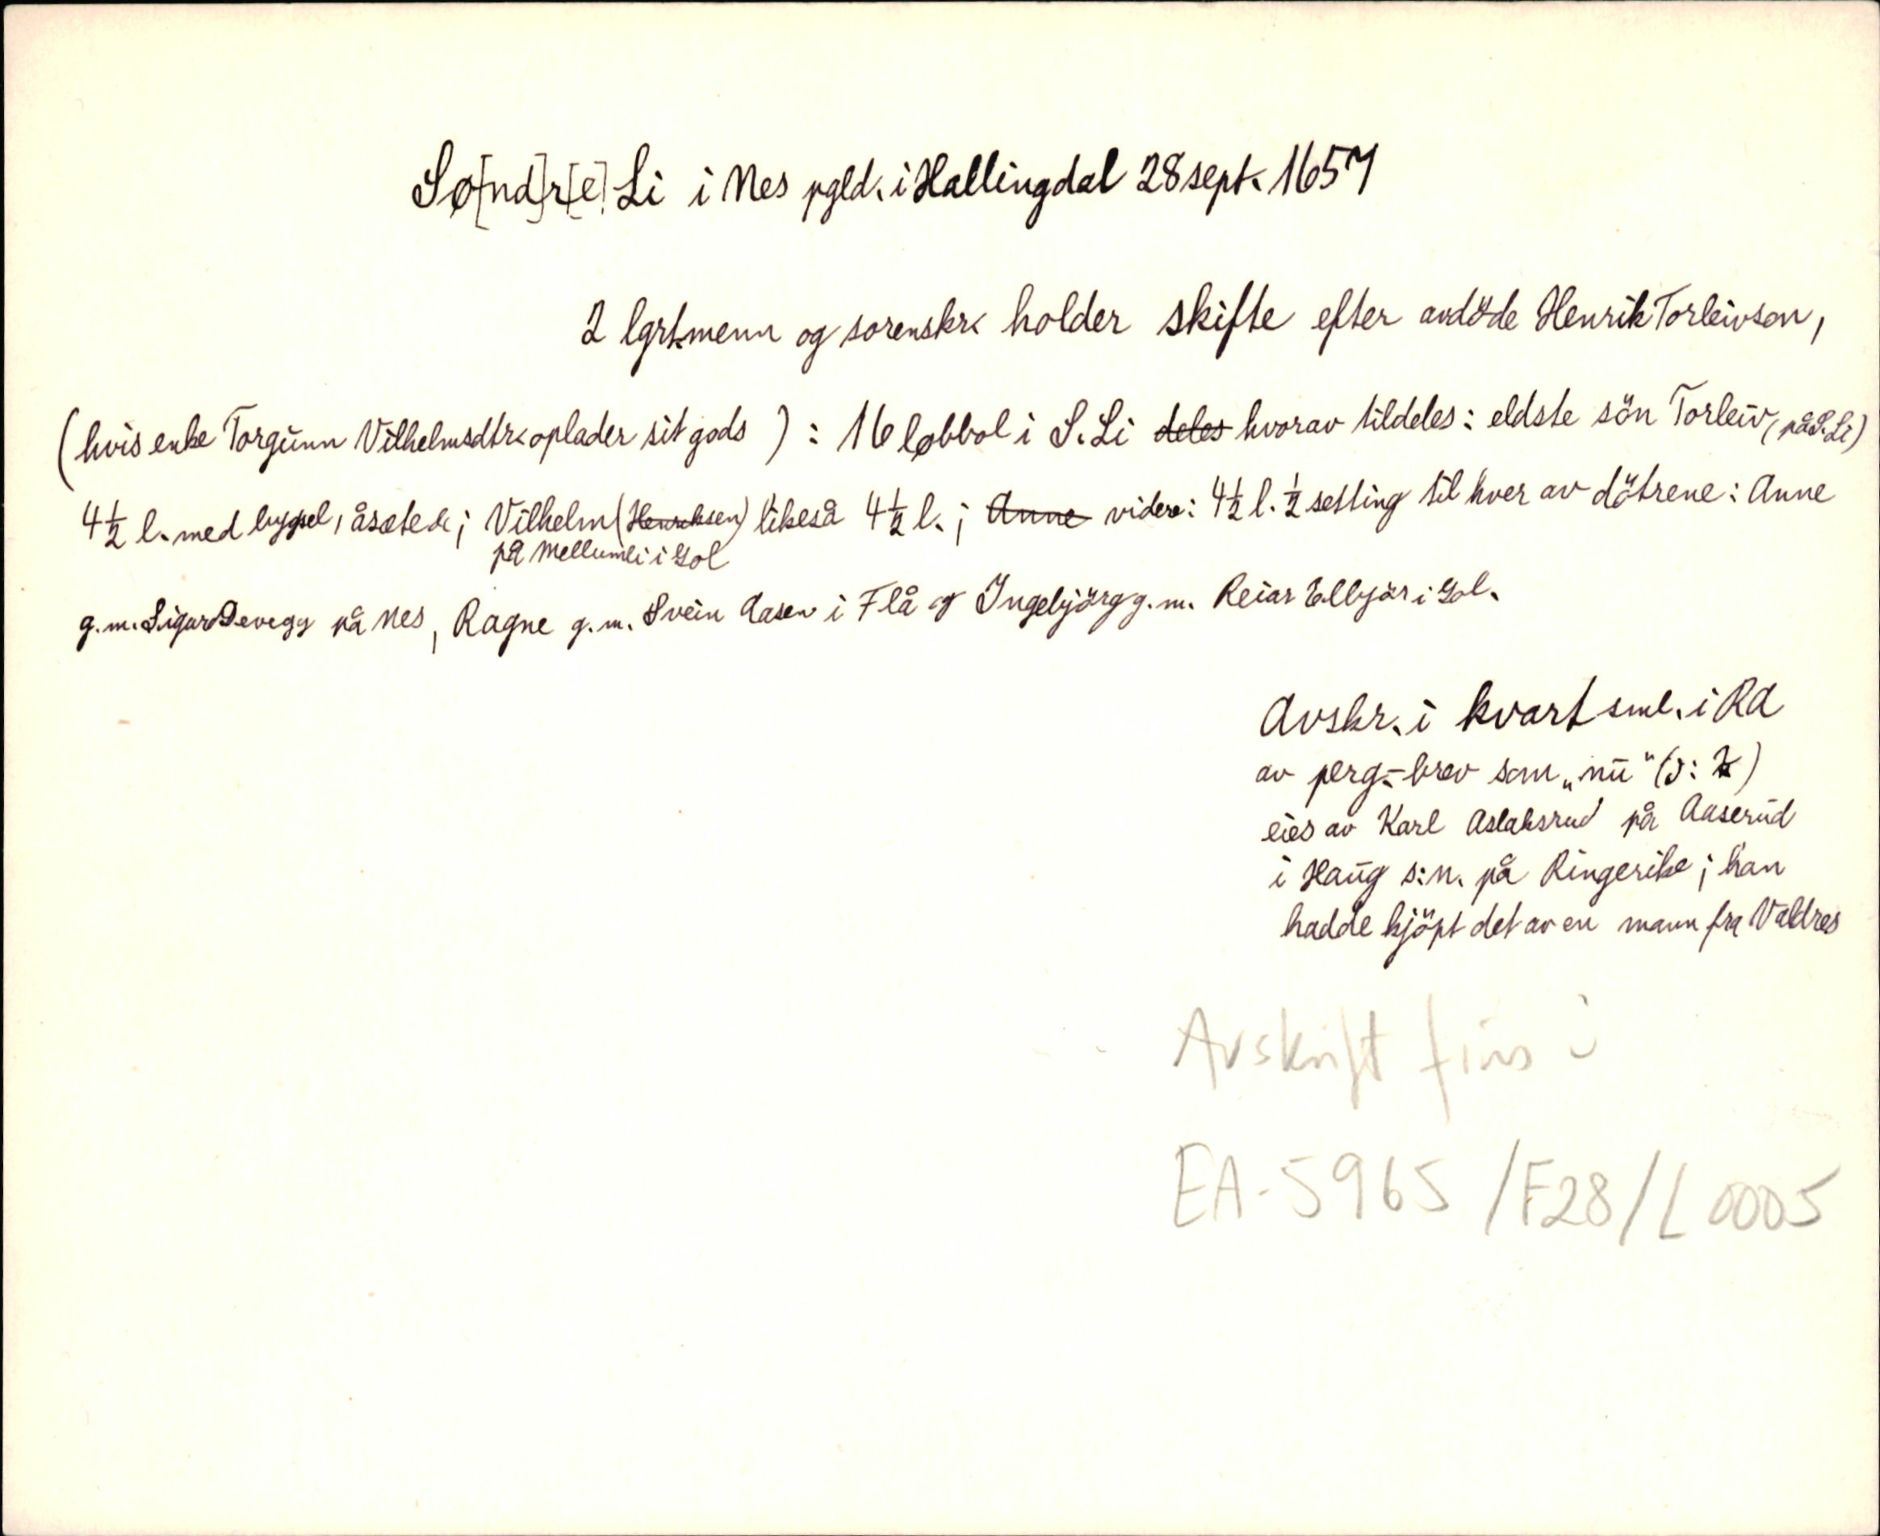 Sø[nd]r[e] Li i Nes pgld. i Hallingdal 28 sept. 1657
2 lgrt.menn og sorenskr. holder skifte efter avdöde Henrik Torleivson,
(hvis enke Torgunn Vilhelmsdtr. oplader sit gods ) : 16 løbbol i S. Li deles hvorav tildeles: eldste sön Torleiv, (på S. Li)
4½ l. med bygsel, åsæte &; Vilhelm (Henriksen) likeså 4½ l.; Anne videre: 4½ l. ½ setting til hver av dötrene: Anne
på Mellumli i Gol
g.m. Sigurd Devegg på Nes, Ragne g.m. Svein Aasen i Flå og Ingebjörg g.m. Reiar Elbjör i Gol.
Avskr. i kvart sml. i RA
av perg.-brev som „nu“ (ɔ: )
eies av Karl Aslaksrud på Aaserud
i Haug s:n. på Ringerike; han
hadde kjöpt det av en mann fra Valdres
Avskrift fins i
EA-5965/F28/L0005